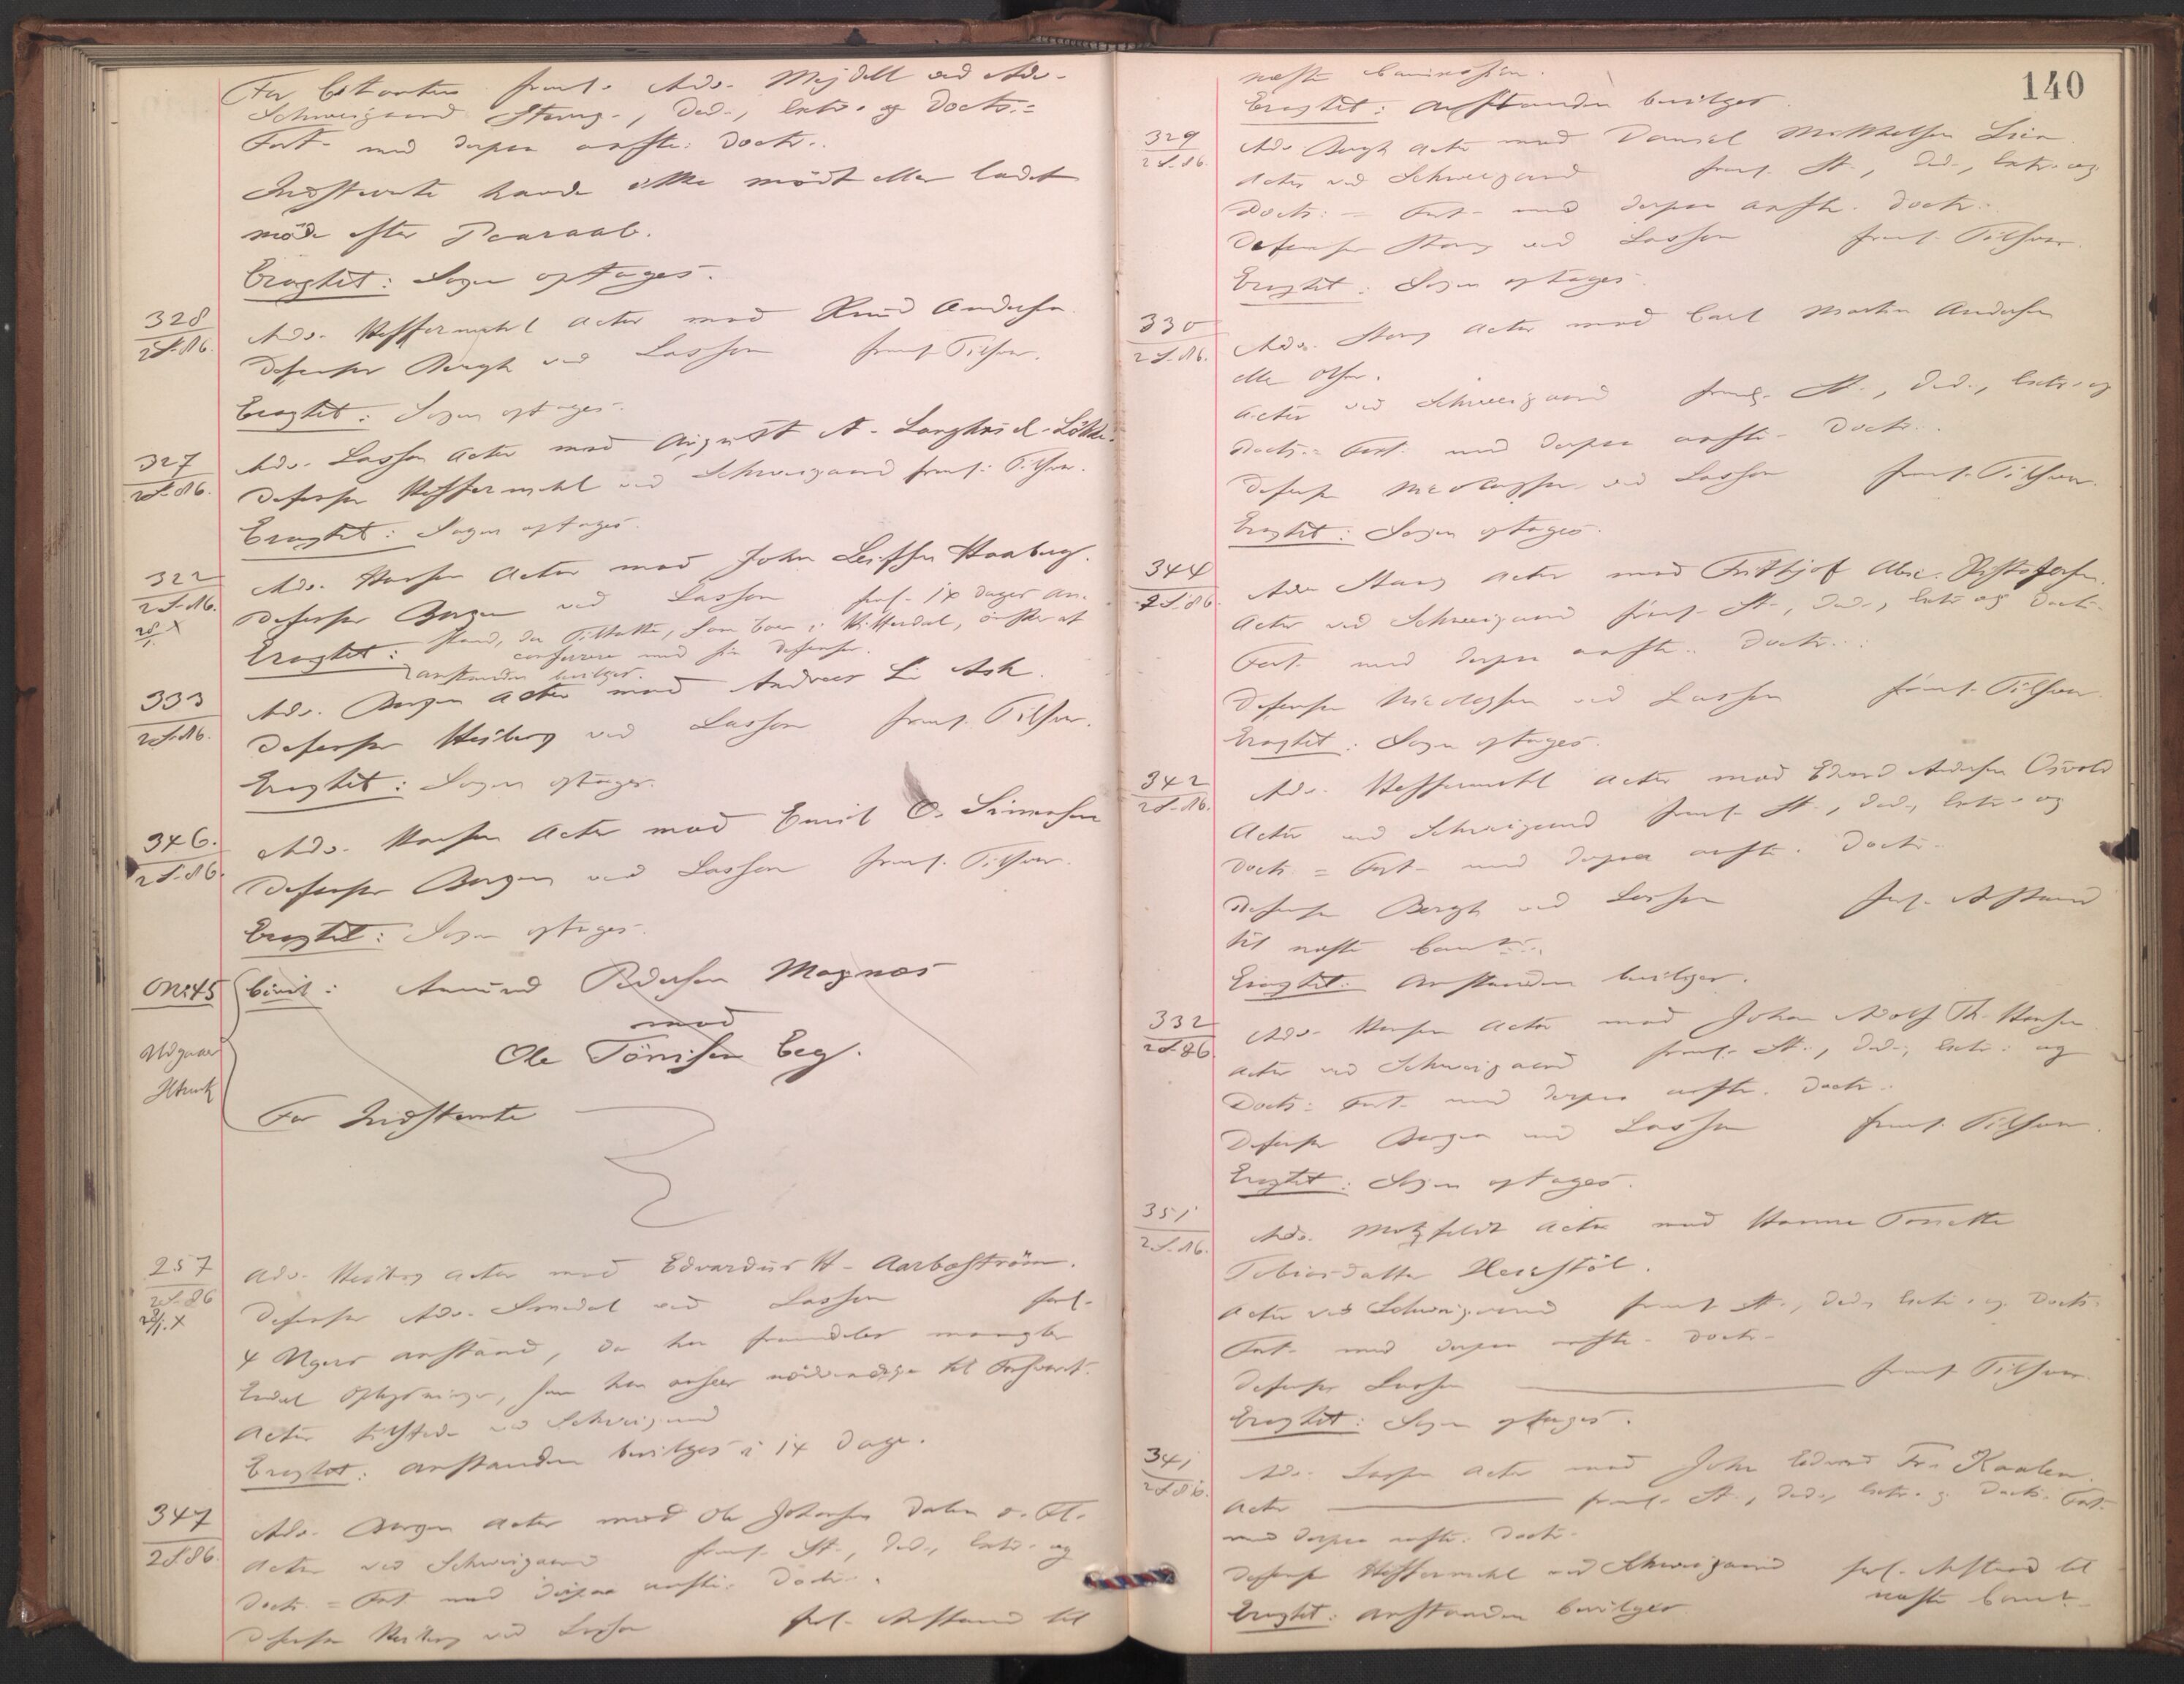 For Citanten fremst. Adv. Mejdell ved Adv.
Schweigaard Stevng., Ded., Extr. og Doct.:=
Fort. med derpaa anført Doctr..
Indstevnte havde ikke mødt eller ladet
møde efter Paaraab.
Eragtet: Sagen optages.
328
2S.86.
Adv. Heffermehl Actor mod Knud Andersen.
Defensor Bergh ved Lasson freml. Tilsvar.
Eragtet: Sagen optages.
327
2S.86.
Adv. Lasson Actor mod August A. Langkuil-Løkke.
Defensor Heffermehl ved Schweigaard freml. Tilsvar.
Eragtet: Sagen optages.
322
2S.86.
28/1 X
Adv. Hansen Actor mod John Leifsen Haaberg.
Defensor Bergen ved Lasson forl. 14 Dages An-
stand, da Tiltalte, som boer i Hitterdal, ønsker at
conferere med sin Defensor.
Eragtet: Anstanden bevilges.
333
2S.86.
Adv. Bergen Actor mod Andreas L. Ask.
Defensor Heiberg ved Lasson freml. Tilsvar.
Eragtet: Sagen optages.
346.
2S.86.
Adv. Hansen Actor mod Emil O. Simensen
Defensor Bergen ved Lasson freml. Tilsvar.
Eragtet: Sagen optages.
No 45
Civil: Amund Pedersen Magnæs
mod
Udgaaer
Ole Tønisen Eeg.
For Indstevnte
257
2S.86
28/1. X
Adv. Heiberg Actor mod Edvardus H. Aarboström.
Defensor Adv. Smedal ved Lasson forl.
4 Ugers Anstand, da han fremdeles mangler
Endel Oplysninger, som han anseer nødvendige til Forsvaret.
Actor tilstede ved Schweigaard
Eragtet: Anstanden bevilges i 14 Dage.
347
2S86.
Adv. Bergen Actor mod Ole Johansen Dalen o. Fl.
Actor ved Schweigaard freml. St., Ded., Extr. og
Doct. = Fort. med derpaa anført. Doctr..
Defensor Heiberg ved Lasson forl. Anstand til
140
næste Camination.
Eragtet: Anstanden bevilges.
329
2S.86.
Adv. Bergh Actor mod Daniel Mikkelsen Lien
Actor ved Schweigaard freml. St., Ded., Extr. og
Doctr: = Fort. med derpaa anført. Doctr.
Defensor Stang ved Lasson freml. Tilsvar.
Eragtet: Sagen optages.
330
2S.86.
Adv. Stang Actor mod Carl Martin Andersen
eller Olsen.
Actor ved Schweigaard freml. St., Ded., Extr. og
Doctr.= Fort. med derpaa anført. Doctr..
Defensor Nicolaysen ved Lasson freml. Tilsvar.
Eragtet: Sagen optages.
344
2S86.
Adv. Stang Actor mod Frithjof Abr. Kristofersen.
Actor ved Schweigaard freml. St., Ded., Extr. og Doctr.
Fort. med derpaa anført. Doctr..
Defensor Nicolaysen ved Lasson freml. Tilsvar.
Eragtet: Sagen optages.
342
2S.86.
Adv. Heffermehl Actor mod Edvard Andersen Osvold
Actor ved Schweigaard freml. St., Ded., Extr. og
Doctr = Fort. med derpaa anført. Doctr.
Defensor Bergh ved Lasson forl. Anstand
til næste Camt.
Eragtet: Anstanden bevilges.
332
2S86.
Adv. Hansen Actor mod Johan Adolf Th. Hansen
Actor ved Schweigaard freml. St., Ded., Extr. og
Doctr: Fort. med derpaa anført. Doctr..
Defensor Bergen ved Lasson freml. Tilsvar.
Eragtet: Sagen optages.
351
2S.86.
Adv. Motzfeldt Actor mod Hanne Tonette
Tobiasdatter
Actor ved Schweigaard freml. St., Ded., Extr. og Doctr.
Fort. med derpaa anført. Doctr.
Defensor Lasson freml. Tilsvar.
Eragtet: Sagen optages.
341
2S86.
Adv. Lasson Actor mod John Edvard Fr. Kaalen.
Actor freml. St., Ded., Extr. og Doctr. Fort.
med derpaa anført. Doctr.
Defensor Heffermehl ved Schweigaard forl. Anstand til
næste Camt.
Eragtet: Anstanden bevilges